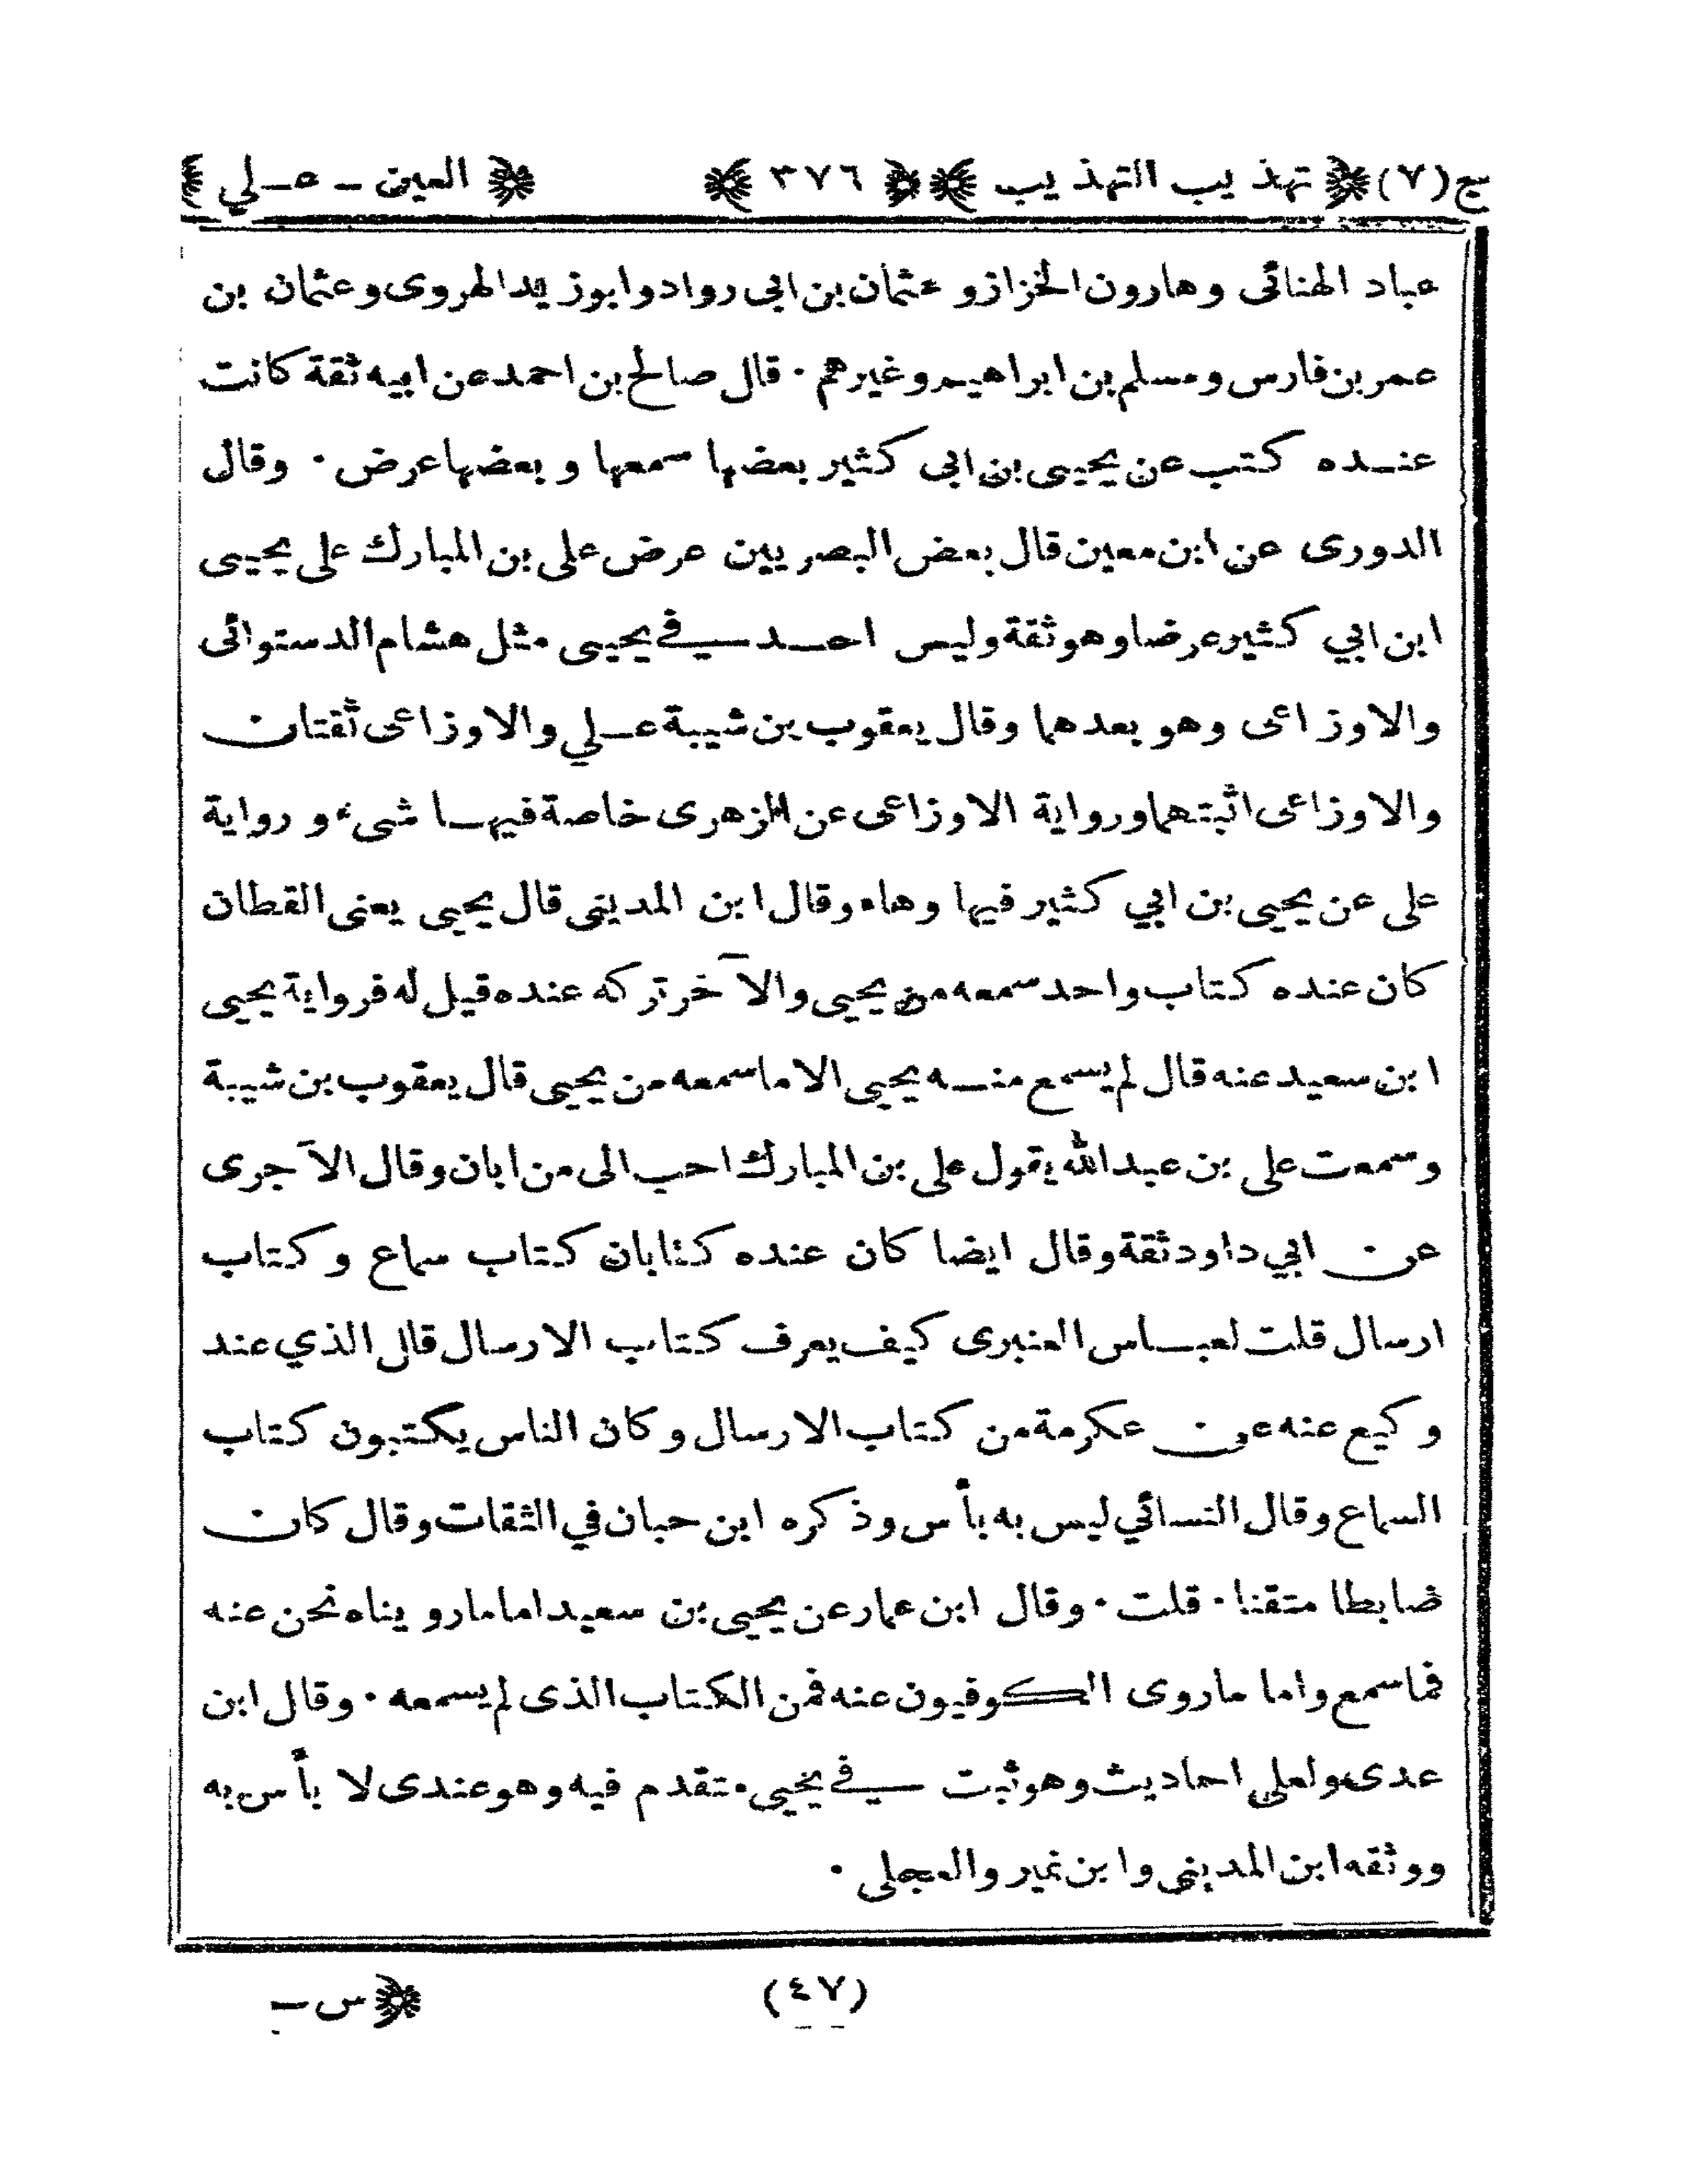 ج (٧) تهذيب التهذيب ٣٧٦ العين - علي
عباد الهنائى وهارون الخزاز وعثمان بن ابى رواد وابو زيد الهروى وعثمان بن
عمر بن فارس ومسلم بن ابراهيم وغيرهم ٠ قال صالح بن احمد عن ابيه ثقة كانت
عنده كتب عن يحيى بن ابى كثير بعضها سمعها و بعضها عرض ٠ وقال
الدورى عن ابن معين قال بعض البصريين عرض على بن المبارك على يحيى
ابن ابي كثير عرضا وهو ثقة وليس احد في يحيى مثل هشام الدستوائى
والاوزاعى وهو بعدهما وقال يعقوب بن شيبة علي والاوزاعى ثقتان
والاوزاعى اثبتهما ورواية الاوزاعى عن الزهرى خاصة فيها شىء و رواية
على عن يحيى بن ابي كثير فيها وهاء وقال ابن المدينى قال يحيى يعنى القطان
كان عنده كتاب واحد سمعه من يحيى والآخر تركه عنده قيل له فرواية يحيى
ابن سعيد عنه قال لم يسمع منه يحيى الا ما سمعه من يحيى قال يعقوب بن شيبة
وسمعت على بن عبد الله يقول على بن المبارك احب الى من ابان وقال الآجرى
عن ابي داود ثقة وقال ايضا كان عنده كتابان كتاب سماع وكتاب
ارسال قلت لعباس العنبرى كيف يعرف كتاب الارسال قال الذي عند
وكيع عنه عن عكرمة من كتاب الارسال وكان الناس يكتبون كتاب
السماع وقال النسائي ليس به بأس وذكره ابن حبان في الثقات وقال كان
ضابطا متقنا ٠ قلت ٠ وقال ابن عمار عن يحيى بن سعيد اما مارويناه نحن عنه
فما سمع واما ماروى الكوفيون عنه فمن الكتاب الذى لم يسمعه ٠ وقال ابن
عدى ولعلى احاديث وهو ثبت في يحيى متقدم فيه وهو عندى لا بأس به
ووثقه ابن المدينى وابن نمير والعجلى ٠
(٤٧) س -